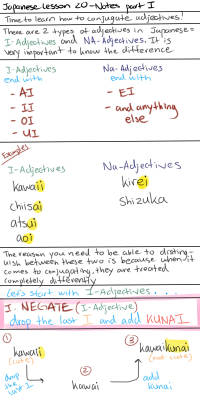 Japanese Lesson 20-Notes part I
Time to learn how to conjugate adjectives!
There are 2 types of adjectives in Japanese=
I-Adjectives and NA-Adjectives. It is
very important to know the difference
I-Adjectives
end with
- AI
- II
- OI
- UI
Na-Adjectives
end with
- EI
- and anything
else
Examples
I-Adjectives
kawaii
chiisai
atsui
aoi
Na-Adjectives
kirei
shizuka
The reason you need to be able to disting-
uish between these two is because when it
comes to conjugating, they are treated
completely differently
Let's start with I-Adjectives...
1. NEGATE (I-Adjective)
drop the last I and add KUNAI
①
kawaii
(cute)
drop
the
last I
②
kawai
③
kawaikunai
(not cute)
add
kunai